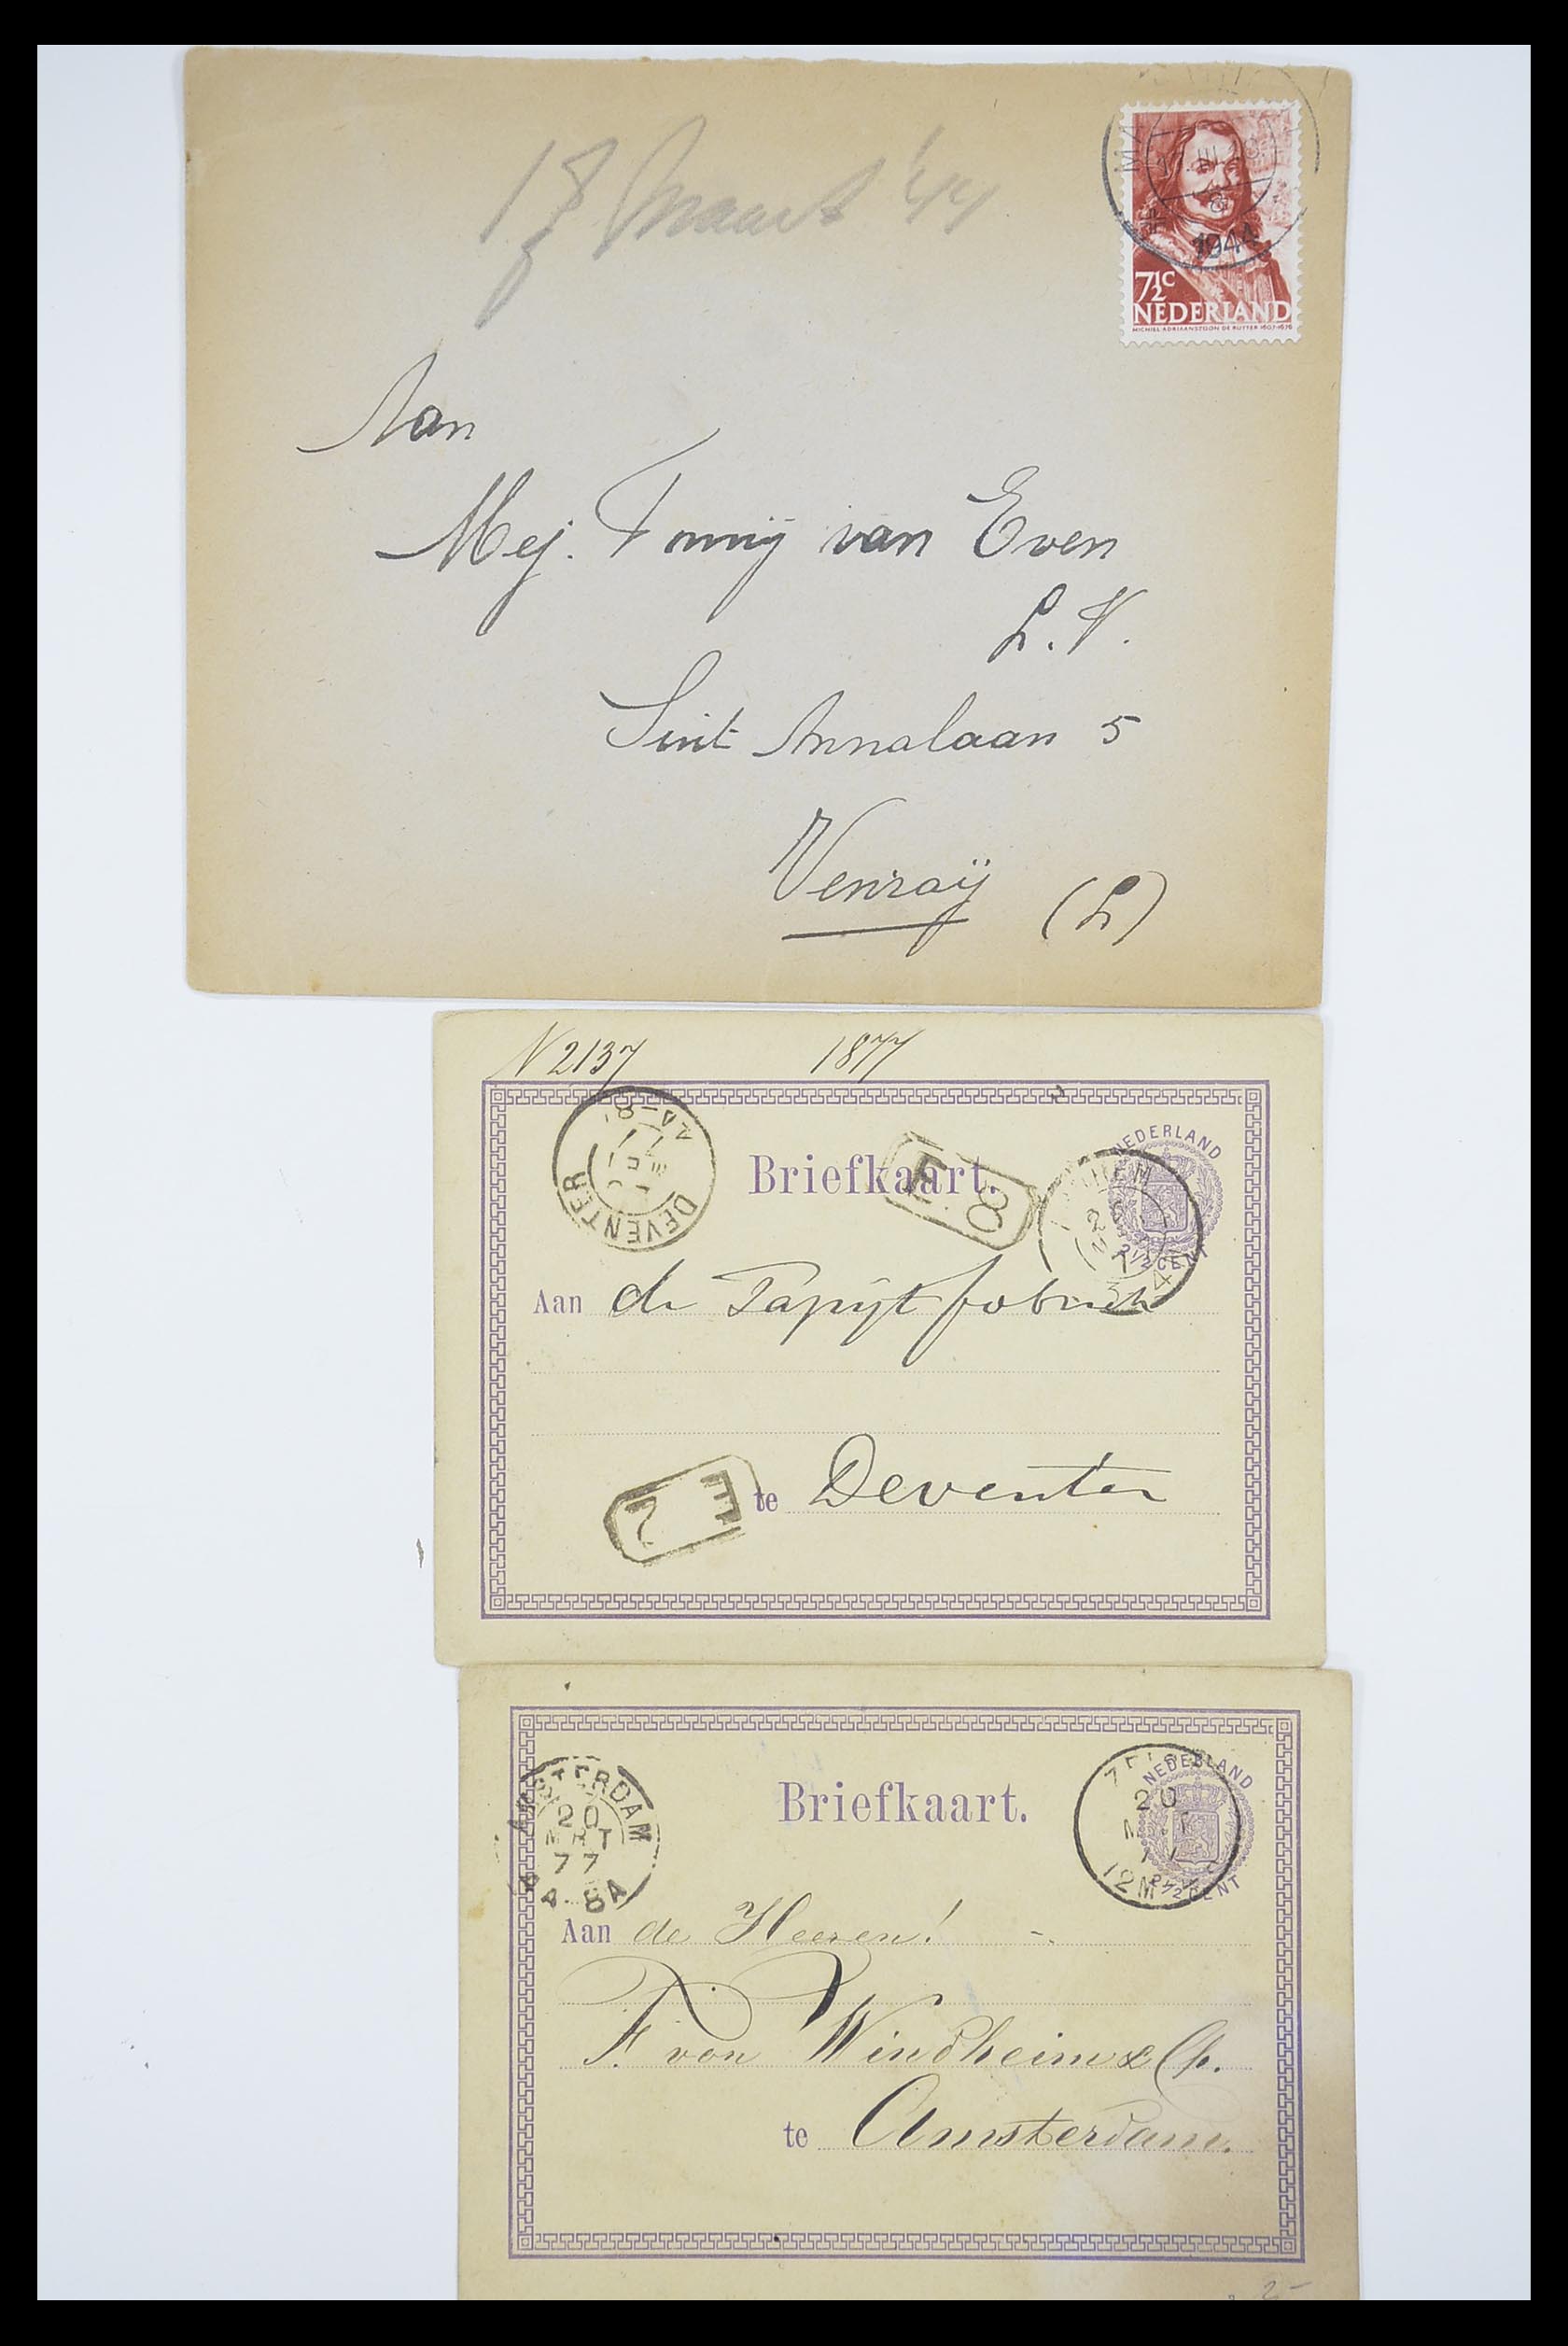 18 Maart '44
1944
7½c
NEDERLAND
MICHIEL ADRIAANSZOON DE RUYTER 1607-1676
Aan
Mej. Tonnij van Even
L.V.
Sint Annalaan 5
Venraij (L)
N 2137 1877
DEVENTER
8-AA
Briefkaart.
NEDERLAND
2½ CENT
Aan de Tapijtfabriek
te Deventer
AMSTERDAM
20
MRT
77
8A
Briefkaart.
NEDERLAND
2½ CENT
20
12M
Aan de Heeren!
F. von Windheim & Co.
te Amsterdam.